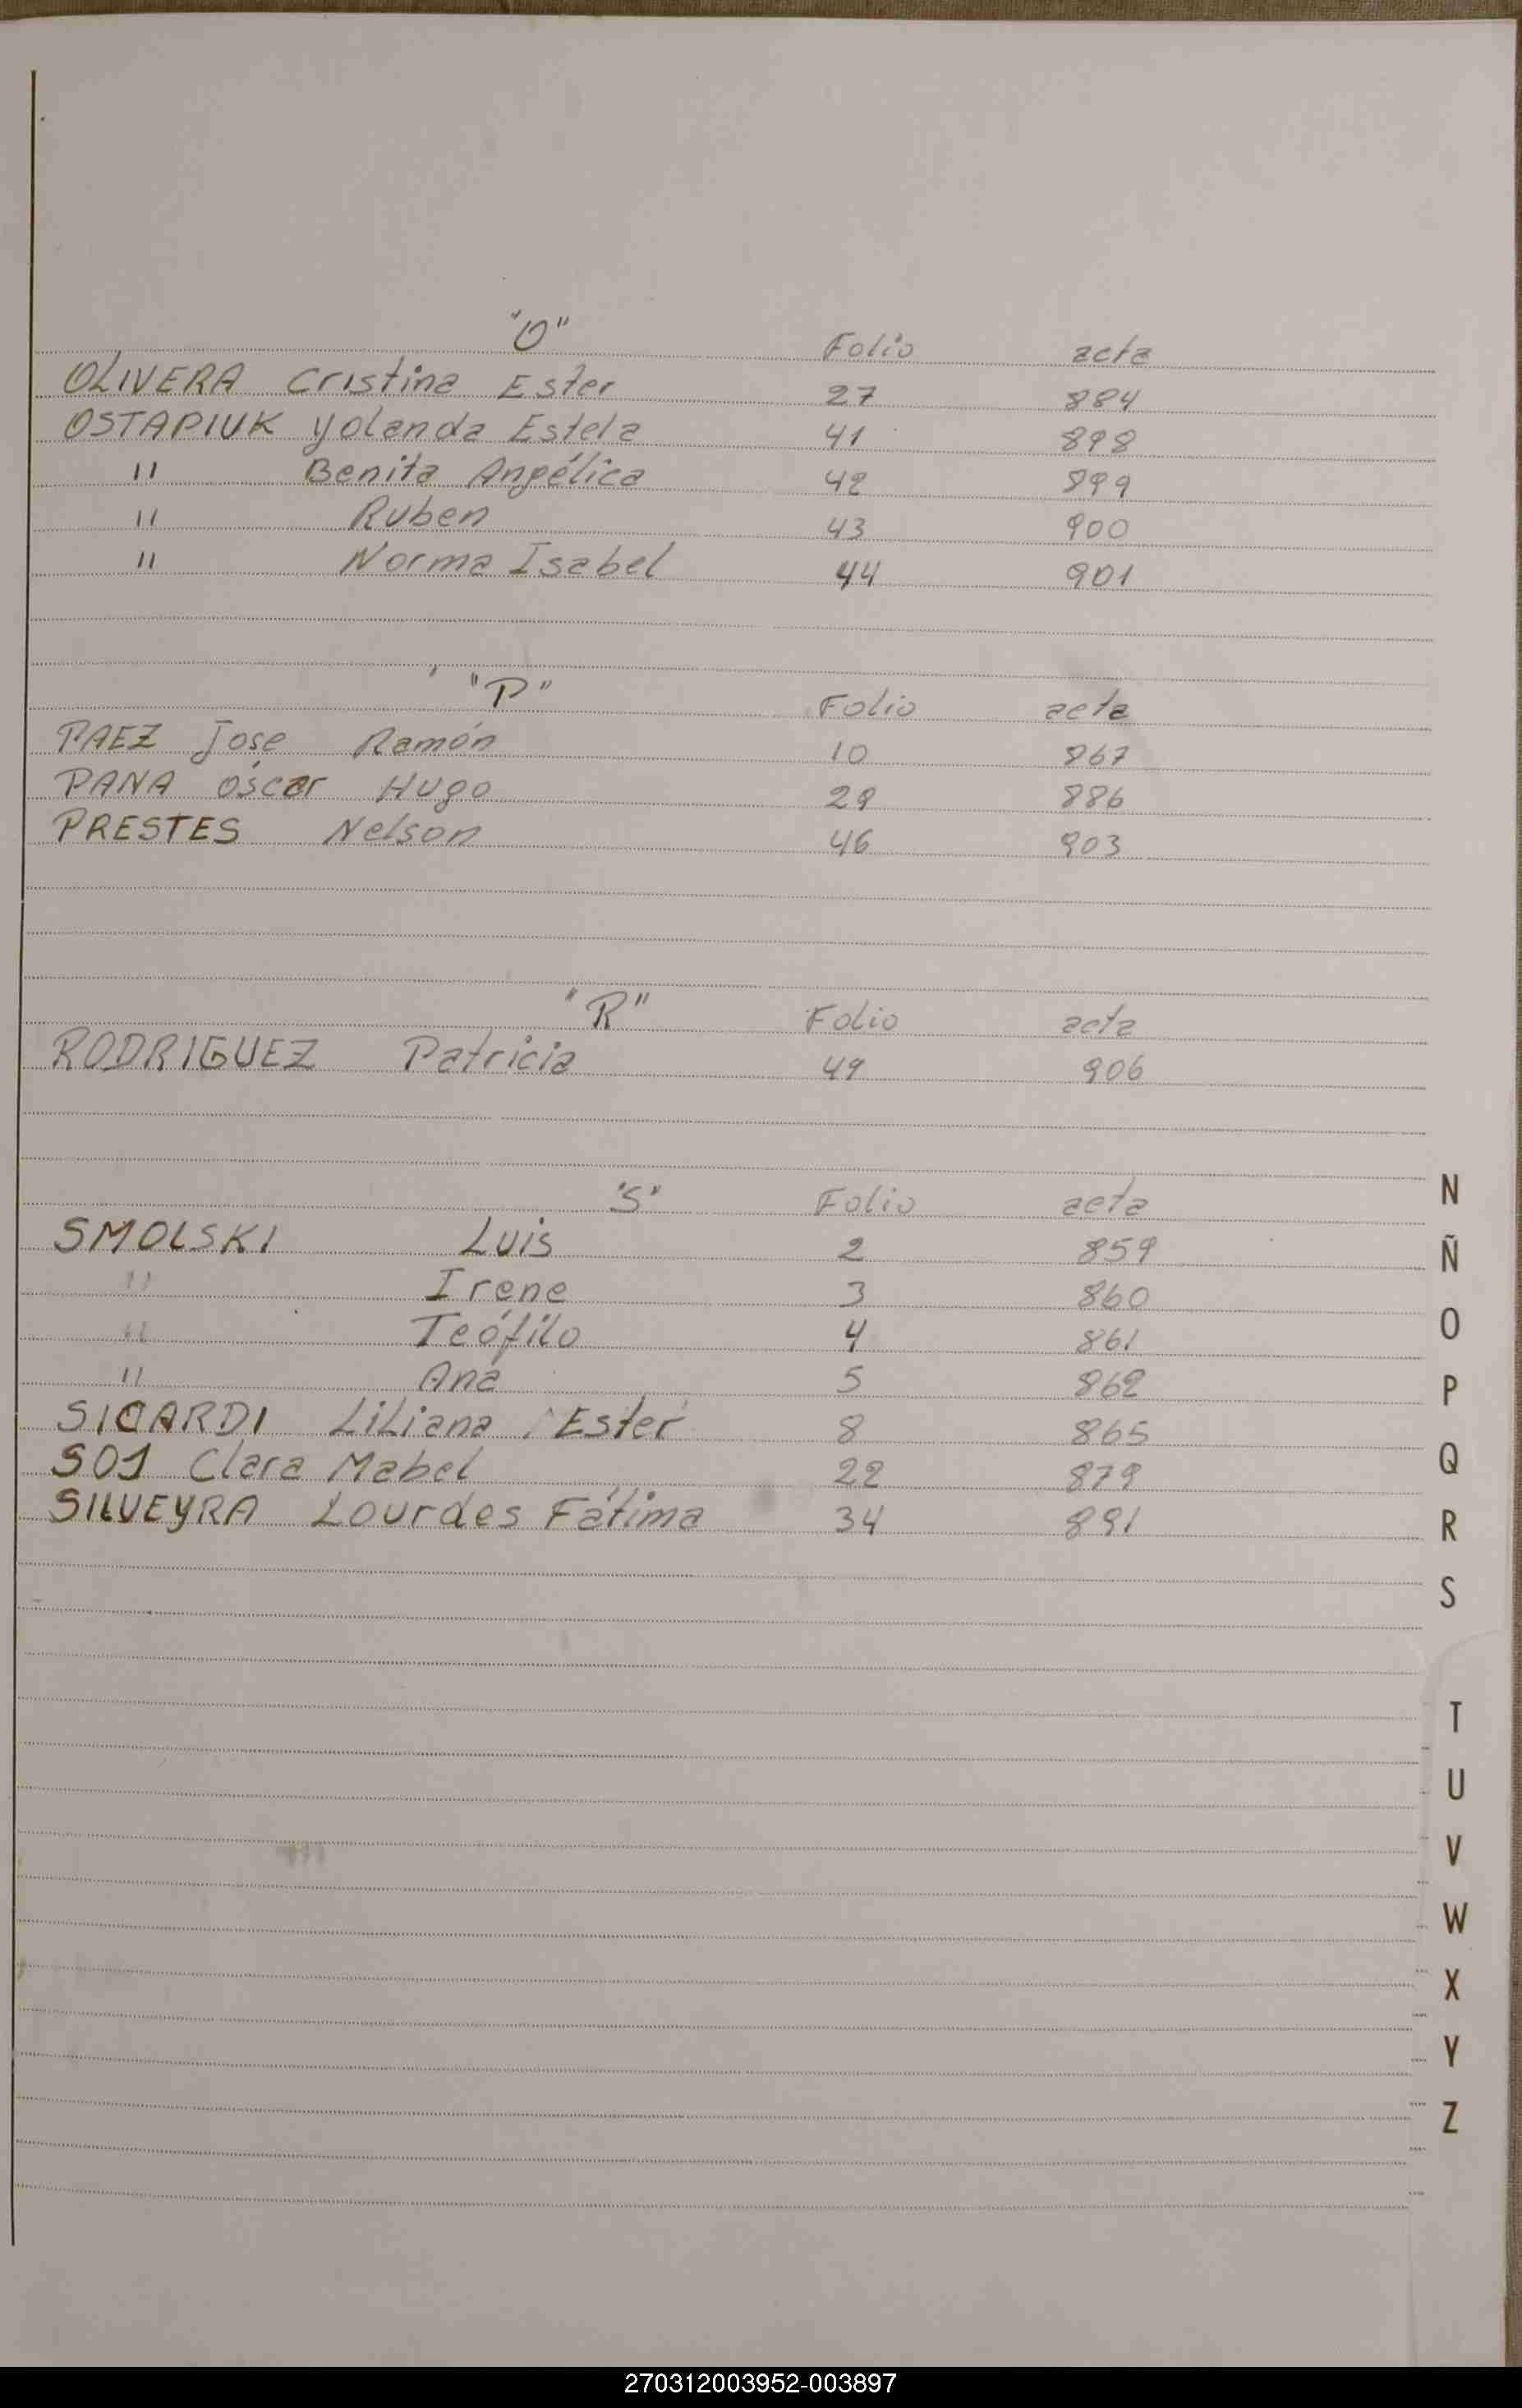 "O" Folio acta
OLIVERA Cristina Ester 27 884
OSTAPIUK Yolanda Estela 41 898
" Benita Angélica 42 899
" Ruben 43 900
" Norma Isabel 44 901
"P" Folio acta
PAEZ Jose Ramón 10 867
PANA Oscar Hugo 29 886
PRESTES Nelson 46 903
"R" Folio acta
RODRIGUEZ Patricia 49 906
"S" Folio acta
SMOLSKI Luis 2 859
" Irene 3 860
" Teófilo 4 861
" Ana 5 862
SICARDI Liliana Ester 8 865
SOS Clara Mabel 22 879
SILVEYRA Lourdes Fátima 34 891
N
Ñ
O
P
Q
R
S
T
U
V
W
X
Y
Z
270312003952-003897